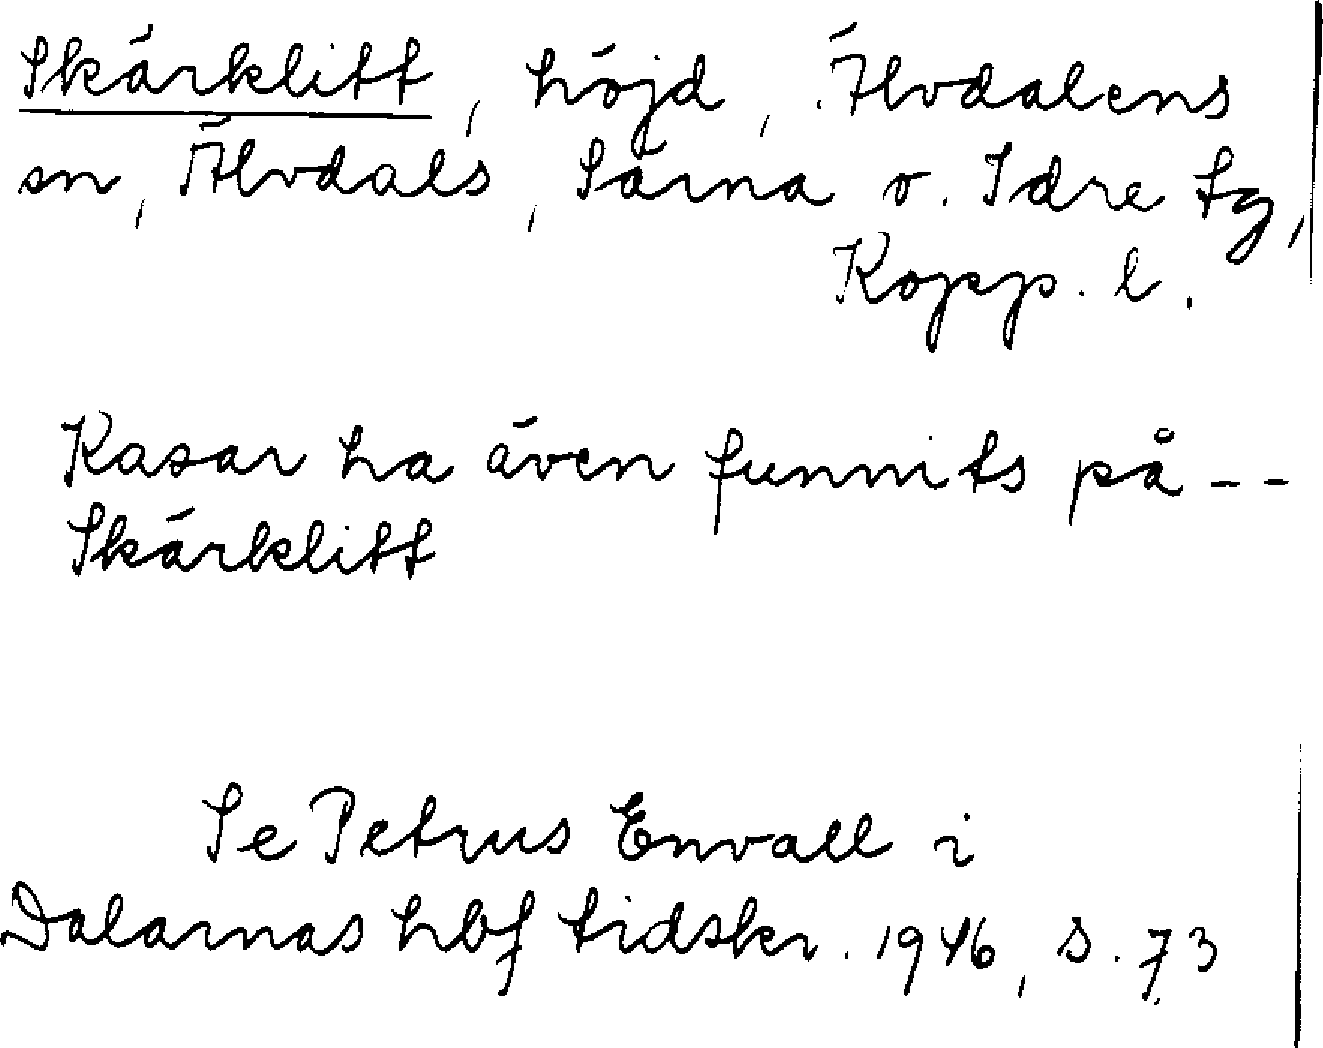 Skärklitt, höjd, Älvdalens
sn, Älvdals, Särna o. Idre tg,
Kopp. l.
Kasar ha även funnits på --
Skärklitt
Se Petrus Envall i
Dalarnas hbf tidskr. 1946, s. 73